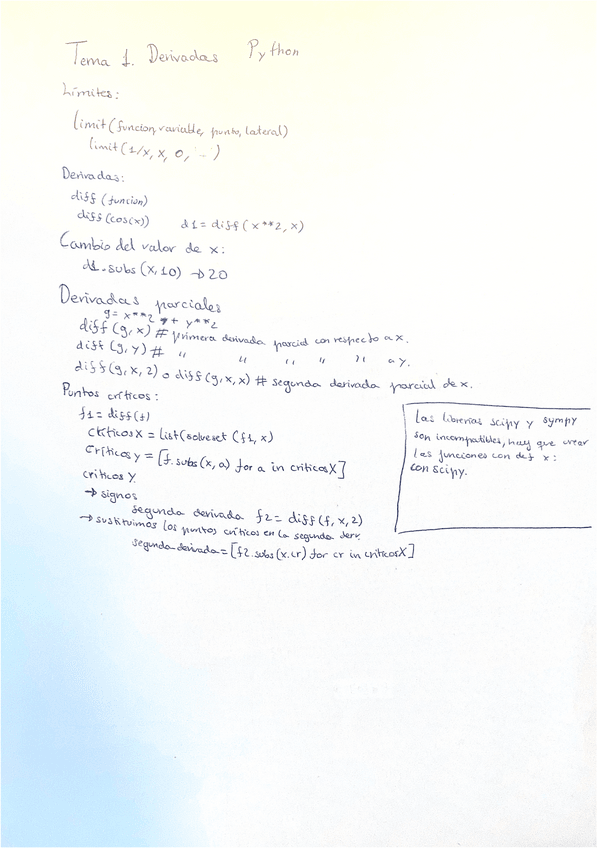 Tema 1. Derivadas Python
Límites:
limit(funcion, variable, punto, lateral)
limit(1/x, x, 0, - )
Derivadas:
diff (funcion)
diff (cos(x)) d1 = diff (x**2, x)
Cambio del valor de x:
d1.subs (x, 10) → 20
Derivadas parciales
g = x**2 + y**2
diff (g, x) # primera derivada parcial con respecto a x.
diff (g, y) # " " " " " a y.
diff (g, x, 2) o diff (g, x, x) # segunda derivada parcial de x.
Puntos críticos:
f1 = diff(f)
criticosX = list(solveset (f1, x)
Criticosy = [f.subs(x, a) for a in criticosX]
criticos Y
→ signos
segunda derivada f2 = diff(f, x, 2)
→ sustituimos los puntos críticos en la segunda derv.
segunda derivada = [f2.subs(x.cr) for cr in criticosX]
Las librerias scipy y sympy
son incompatibles, hay que crear
las funciones con def x:
con scipy.